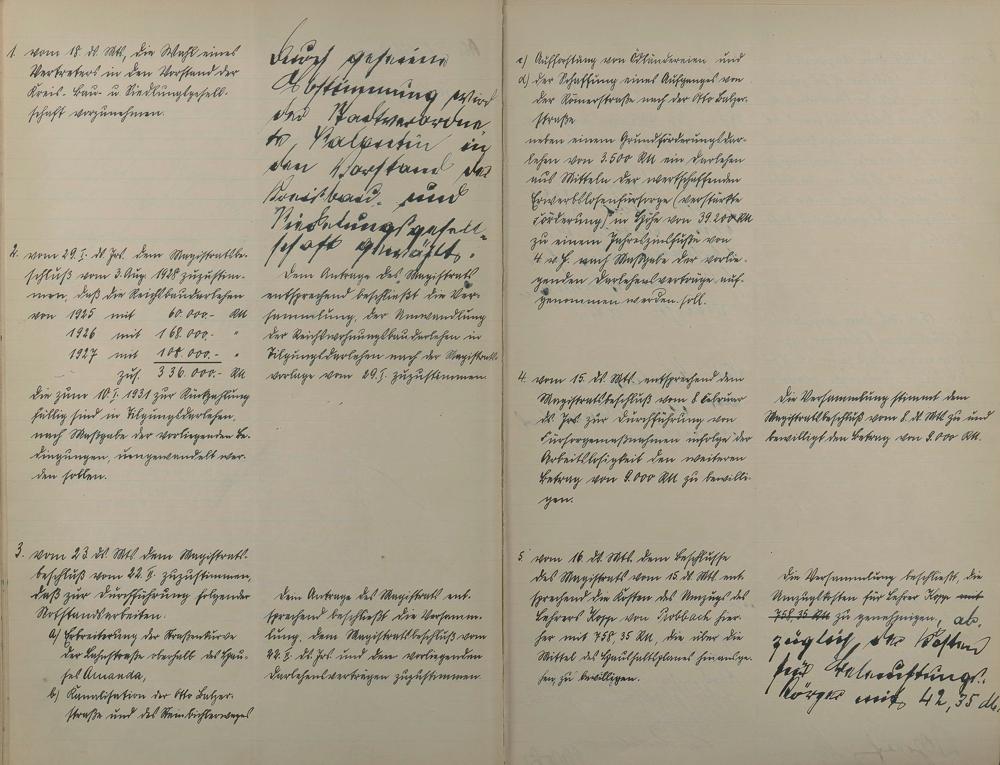 1. vom 18. ds. Mts., die Wahl eines
Vertreters in den Vorstand der
Kreis-Bau- u. Siedlungsgesell-
schaft vorzunehmen.
Durch geheime
Abstimmung wird
der Stadtverordne-
te, in
den Vorstand der
Kreisbau- und
Siedelungsgesell-
schaft gewählt.
2. vom 29. I. ds. Jrs. dem Magistratsbe-
schluß vom 3. Aug. 1928 zuzustim-
men, daß die Reichsbaudarlehen
von 1925 mit 60.000.- RM
1926 mit 168.000.- "
1927 mit 108.000.- "
zus. 336.000.- RM
die zum 10. I. 1931 zur Rückzahlung
fällig sind in Tilgungsdarlehen,
nach Maßgabe der vorliegenden Be-
dingungen, umgewandelt wer-
den sollen.
Dem Antrage des Magistrats
entsprechend beschließt die Ver-
sammlung, der Umwandlung
der Reichswohnungsbaudarlehen in
Tilgungsdarlehen nach der Magistrats-
vorlage vom 29. I. zuzustimmen.
3. vom 23. ds. Mts. dem Magistrats-
beschluß vom 22. II. zuzustimmen,
daß zur Durchführung folgender
Notstandsarbeiten:
a) Erbreiterung der Straßenkurve
der Lahnstraße oberhalb des Hau-
ses Amanda,
b) Kanalisation der Otto Balzer-
straße und des
Dem Antrage des Magistrats ent-
sprechend beschließt die Versamm-
lung, dem Magistratsbeschluß vom
22. II. ds. Jrs. und den vorliegenden
Darlehensverträgen zuzustimmen.
c) Aufforstung von Ödländereien und
d) der Schaffung eines Aufganges von
der Römerstraße nach der Otto Balzer-
straße
neben einem Grundförderungsdar-
lehen von 3.500 RM ein Darlehen
aus Mitteln der wertschaffenden
Erwerbslosenfürsorge (verstärkte
Förderung) in Höhe von 39.200 RM
zu einem Jahreszinsfuße von
4 v.H. nach Maßgabe der vorlie-
genden Darlehensverträge auf-
genommen werden soll.
4. vom 15. ds. Mts. entsprechend dem
Magistratsbeschluß vom 8. Februar
ds. Jrs. zur Durchführung von
Fürsorgemaßnahmen infolge der
Arbeitslosigkeit den weiteren
Betrag von 9.000 RM zu bewilli-
gen.
Die Versammlung stimmt dem
Magistratsbeschluß vom 8. ds. Mts. zu und
bewilligt den Betrag von 9.000 RM.
5. vom 16. ds. Mts. dem Beschlusse
des Magistrats vom 15. ds. Mts. ent-
sprechend die Kosten des Umzugs des
Lehrers Kopp von hier-
her mit 758,35 RM, die über die
Mittel des Haushaltsplanes hinausge-
hen zu bewilligen.
Die Versammlung beschließt, die
Umzugskosten für Lehrer Kopp mit
758,35 RM zu genehmigen, ab-
züglich der Kosten
für Beleuchtungs-
körper mit 42,35 M.